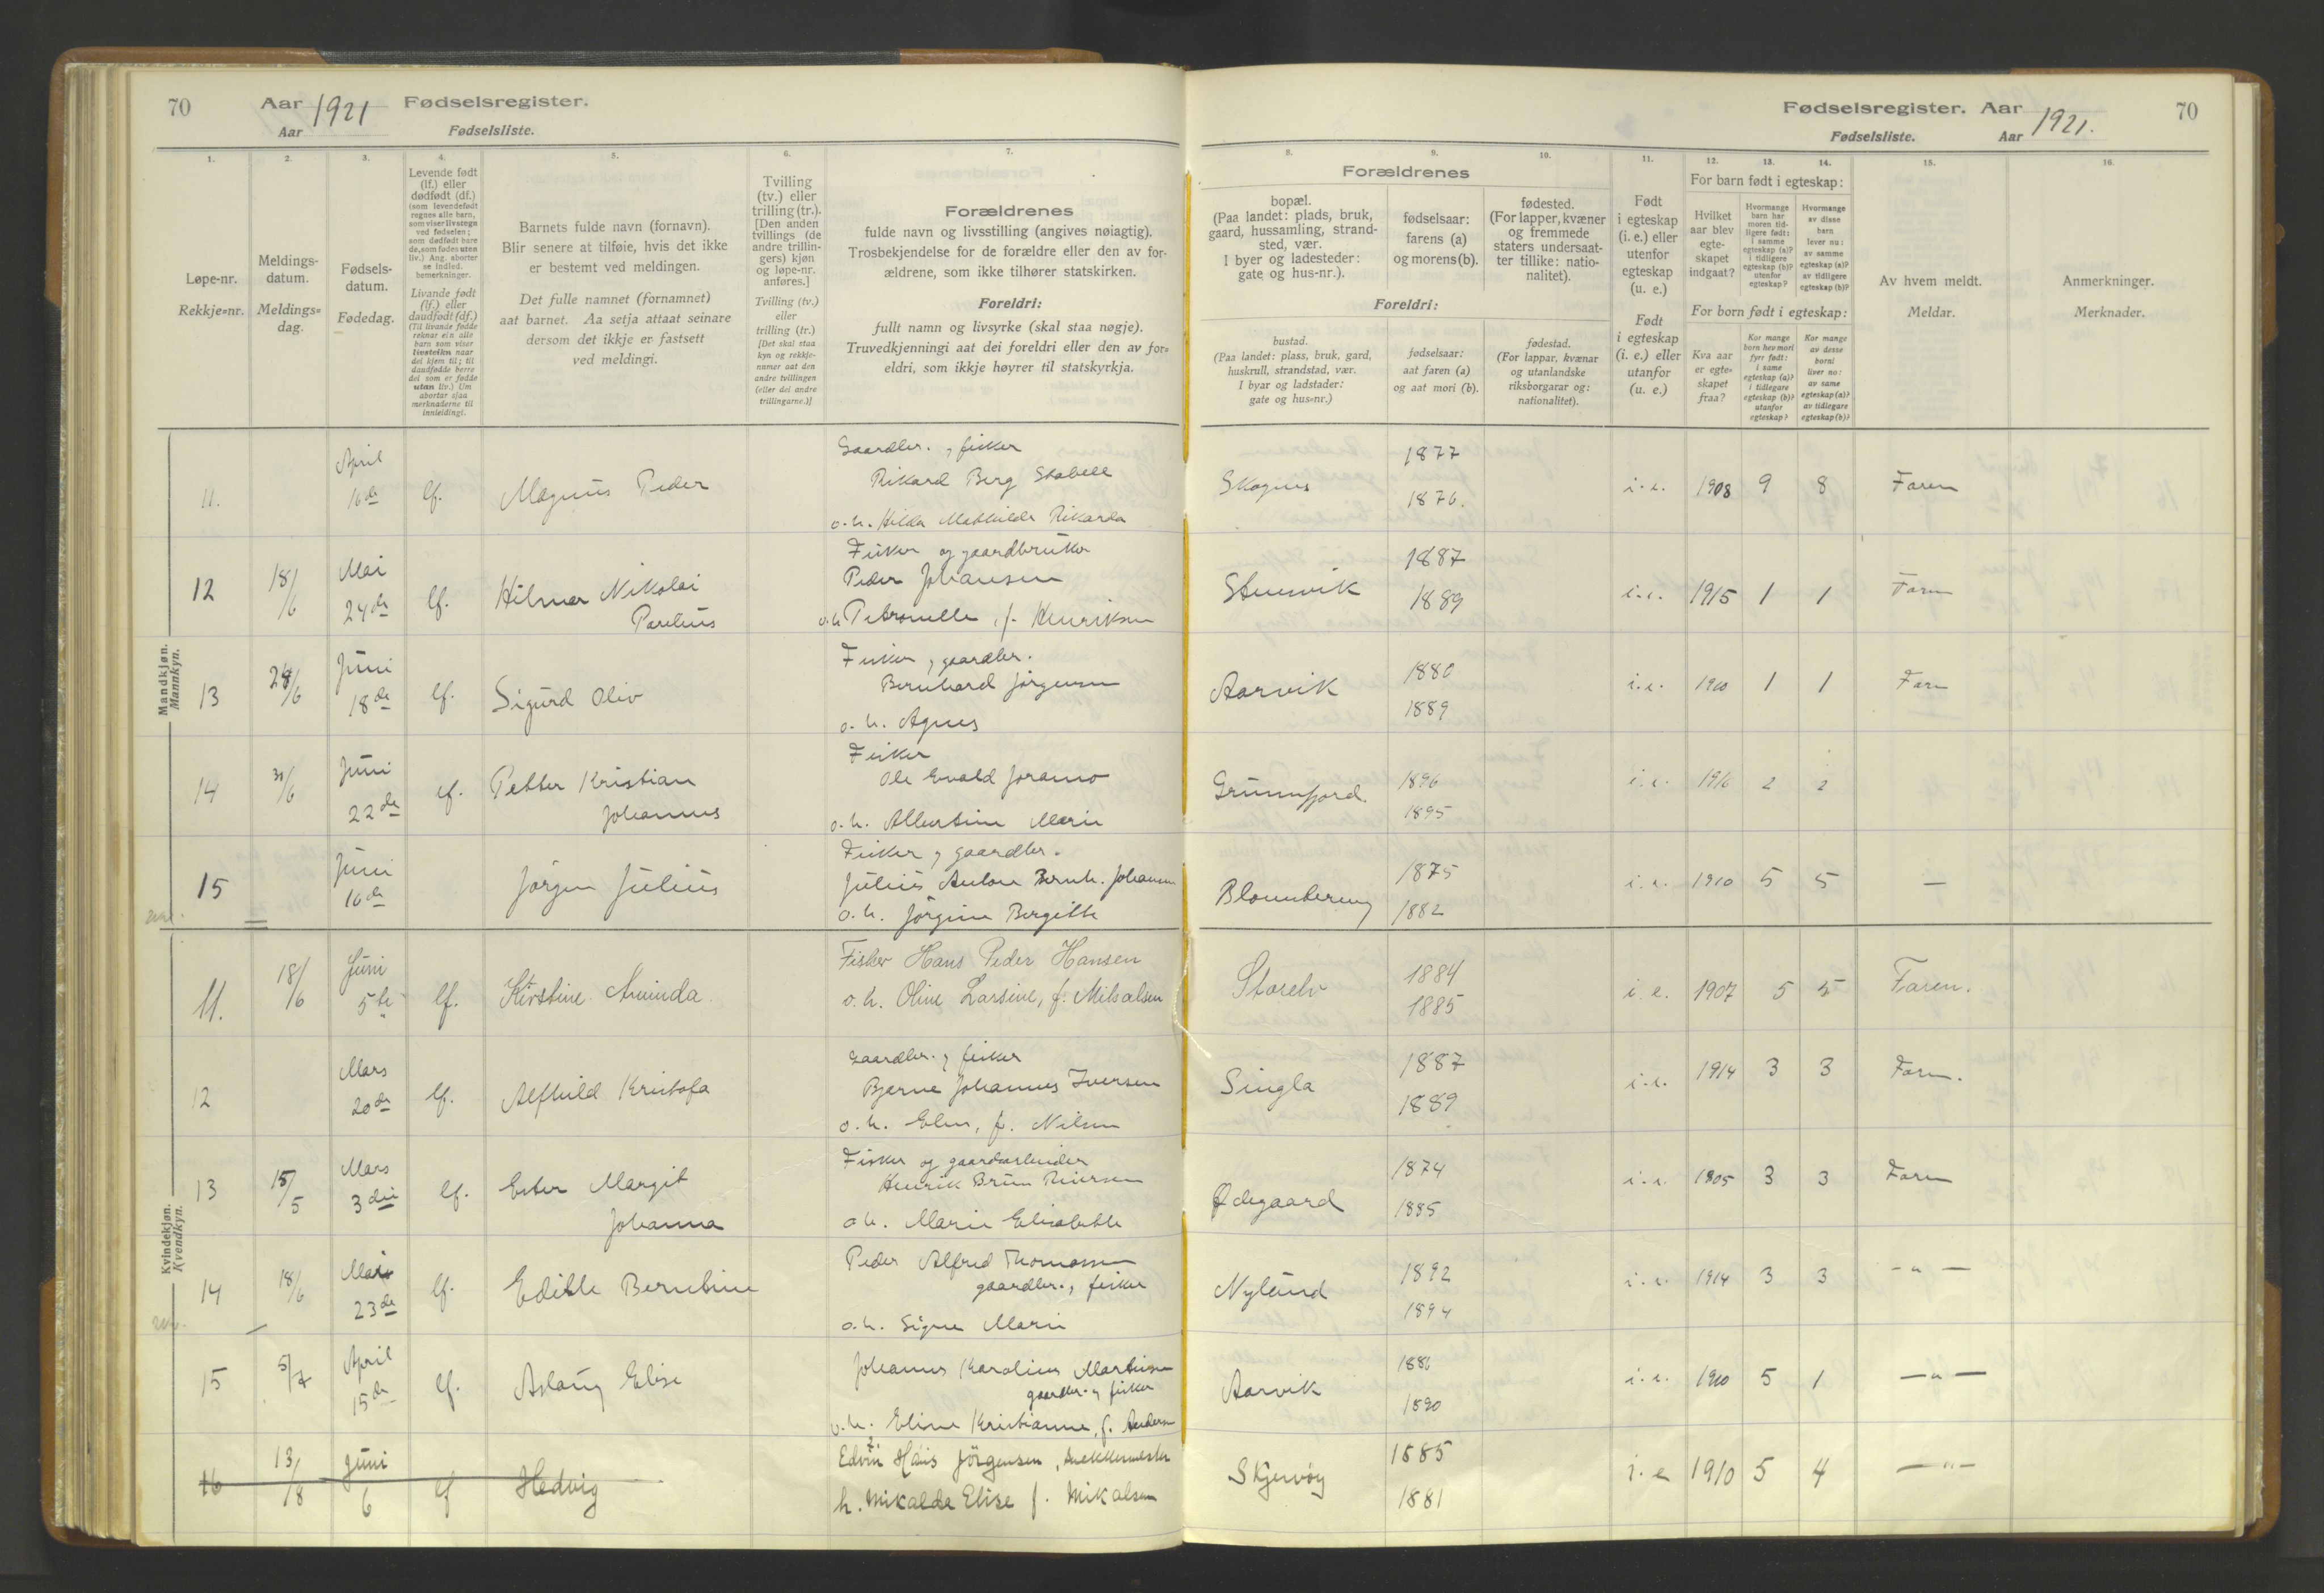 70 Aar 1921 Fødselsregister.
Aar Fødselsliste.
1. 2. 3. 4. 5. 6. 7.
Løpe-nr.
Rekkje-nr.
Meldings-
datum.
Meldings-
dag.
Fødsels-
datum.
Fødedag.
Levende født
(lf.) eller
dødfødt (df.)
(som levendefødt
regnes alle barn,
som viser livstegn
ved fødselen;
som dødfødt bare
de, som fødes uten
liv.) Ang. aborter
se indled.
bemerkninger.
Livande født
(lf.) eller
daudfødt (df.)
(Til livande fødde
reknar ein alle
barn som viser
livsteikn naar
dei kjem til; til
daudfødde berre
dei som er fødde
utan liv.) Um
abortar sjaa
merknaderne til
innleidingi.
Barnets fulde navn (fornavn).
Blir senere at tilføie, hvis det ikke
er bestemt ved meldingen.
Det fulle namnet (fornamnet)
aat barnet. Aa setja attaat seinare
dersom det ikkje er fastsett
ved meldingi.
Tvilling
(tv.) eller
trilling (tr.).
[Den anden
tvillings (de
andre trillin-
gers) kjøn
og løpe-nr.
anføres.]
Tvilling (tv.)
eller
trilling (tr.)
[Det skal staa
kyn og rekkje-
numer aat den
andre tvillingen
(eller dei andre
trillingarne.)]
Forældrenes
fulde navn og livsstilling (angives nøiagtig).
Trosbekjendelse for de forældre eller den av for-
ældrene, som ikke tilhører statskirken.
Foreldri:
fullt namn og livsyrke (skal staa nøgje).
Truvedkjenningi aat dei foreldri eller den av for-
eldri, som ikkje høyrer til statskyrkja.
Mandkjøn.
Mannkyn.
11.
April
16de
lf.
Magnus Peder
Gaardbr. og fisker
Rikard Berg Stabell
o. h. Hilda Mathilde Rikarda
12
18/6
Mai
24de
lf.
Hilmar Nikolai
Parelius
Fisker og gaardbruker
Peder Johansen
o. h. Petronelle, f. Henriksen
13
28/6
Juni
18de
lf.
Sigurd Oliv
Fisker og gaardbr.
Bernhard Jørgensen
o. h. Agnes
14
30/6
Juni
22de
lf.
Petter Kristian
Johannes
Fisker
Ole Evald Joramo
o. h. Albertine Marie
15
Juni
16de
Jørgen Julius
Fisker og gaardbr.
Julius Anton Bernh. Johansen
o. h. Jørgine Bergitte
Kvindekjøn.
Kvendkyn.
11.
18/6
Juni
5te
lf.
Kirstine Aminda
Fisker Hans Peder Hansen
o. h. Oline Larsine, f. Mikalsen
12
Mars
20de
lf.
Alfhild Kristofa
Gaardbr. og fisker
Bjarne Johannes Iversen
o. h. Elen, f. Nilsen
13
15/5
Mars
3die
lf.
Ester Margit
Johanna
Fisker og gaardarbeider
Henrik Brun Reiersen
o. h. Marie Elisabeth
14
18/6
Mars
23de
lf.
Edithe Berntine
Peder Alfred Thomassen
gaardbr. og fisker
o. h. Signe Marie
15
5/7
April
15de
lf.
Aslaug Elise
Johannes Karolius Martinsen
gaardbr. og fisker
o. h. Eline Kristianne, f. Andersen
16
13/8
Juni
6
lf
Hedvig
Edvin Hans Jörgensen, snekkermester
h. Mikalda Elise f. Mikalsen
Fødselsregister. Aar 1921. 70
Fødselsliste. Aar
8. 9. 10. 11. 12. 13. 14. 15. 16.
Forældrenes
bopæl.
(Paa landet: plads, bruk,
gaard, hussamling, strand-
sted, vær.
I byer og ladesteder:
gate og hus-nr.).
fødselsaar:
farens (a)
og morens (b).
fødested.
(For lapper, kvæner
og fremmede
staters undersaat-
ter tillike: natio-
nalitet).
Foreldri:
bustad.
(Paa landet: plass, bruk, gard,
huskrull, strandstad, vær.
I byar og ladstader:
gate og hus-nr.)
fødselsaar:
aat faren (a)
og aat mori (b).
fødestad.
(For lappar, kvænar
og utanlandske
riksborgarar og:
nationalitet).
Født
i egteskap
(i. e.) eller
utenfor
egteskap
(u. e.)
Født
i egteskap
(i. e.) eller
utanfor
(u. e.)
For barn født i egteskap:
Hvilket
aar blev
egte-
skapet
indgaat?
Hvormange
barn har
moren tid-
ligere født:
i samme
egteskap (a)?
i tidligere
egteskap (b)?
utenfor
egteskap?
Hvormange
av disse
barn
lever nu:
av samme
egteskap (a)?
av tidligere
egteskap (b)?
For born født i egteskap:
Kva aar
er egte-
skapet
fraa?
Kor mange
born hev mori
fyrr født:
i same
egteskap (a)?
i tidlegare
egteskap (b)?
utanfor
egteskap?
Kor mange
av desse
borni
liver no:
av same
egteskap (a)?
av tidlegare
egteskap (b)?
Av hvem meldt.
Meldar.
Anmerkninger.
Merknader.
Skognes 1877 1876. i. e. 1908 9 8 Faren
Stenvik 1887 1889 i. e. 1915 1 1 Faren
Aarvik 1880 1889 i. e. 1910 1 1 Faren
Grunnfjord 1896 1895 i. e. 1916 2 2
1875 1882 i. e. 1910 5 5 —
Storelv 1884 1885 i. e. 1907 5 5 Faren.
Singla 1887 1889 i. e. 1914 3 3 Faren.
Ødegaard 1874 1885 i. e. 1905 3 3 Faren
Nyland 1892 1894 i. e. 1914 3 3 — " —
Aarvik 1886 1890 i. e. 1910 5 1 — " —
Skjervøy 1885 1881 i. e 1910 5 4 — " —